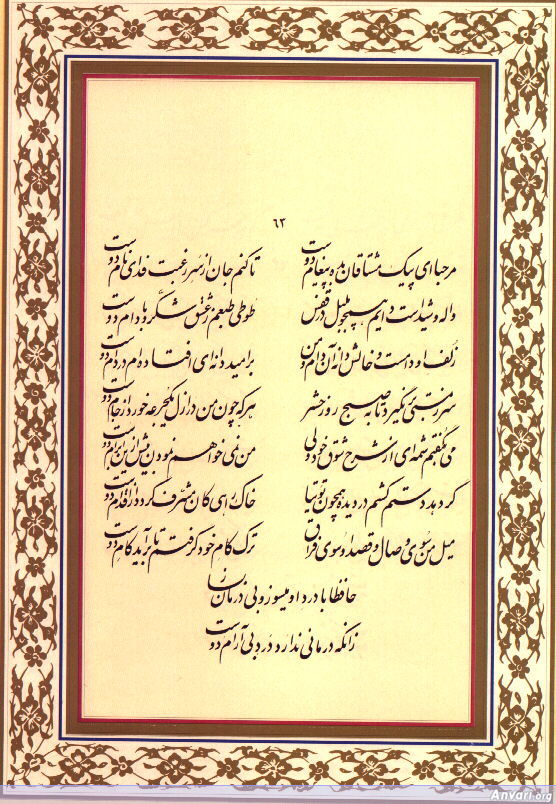 ۶۳
مرحبا ای پیک مشتاقان بده پیغام دوست تا کنم جان از سر رغبت فدای نام دوست
واله و شیداست دایم همچو بلبل در قفس طوطی طبعم ز عشق شکر و بادام دوست
زلف او دامست و خالش دانه آن دام و من بر امید دانه ای افتاده ام در دام دوست
سر ز مستی بر نگیرد تا به صبح روز حشر هر که چون من در ازل یک جرعه خورد از جام دوست
می نگفتم شمه ای از شرح شوق خود ولی من نمی خواهم نمودن بیش ازین ابرام دوست
گر دهد دستم کشم در دیده همچون توتیا خاک راهی کان مشرف گردد از اقدام دوست
میل من سوی وصال و قصد او سوی فراق ترک کام خود گرفتم تا برآید کام دوست
حافظا با درد او میسوز و بی درمان بساز
زانکه درمانی ندارد درد بی آرام دوست
Anvari.org